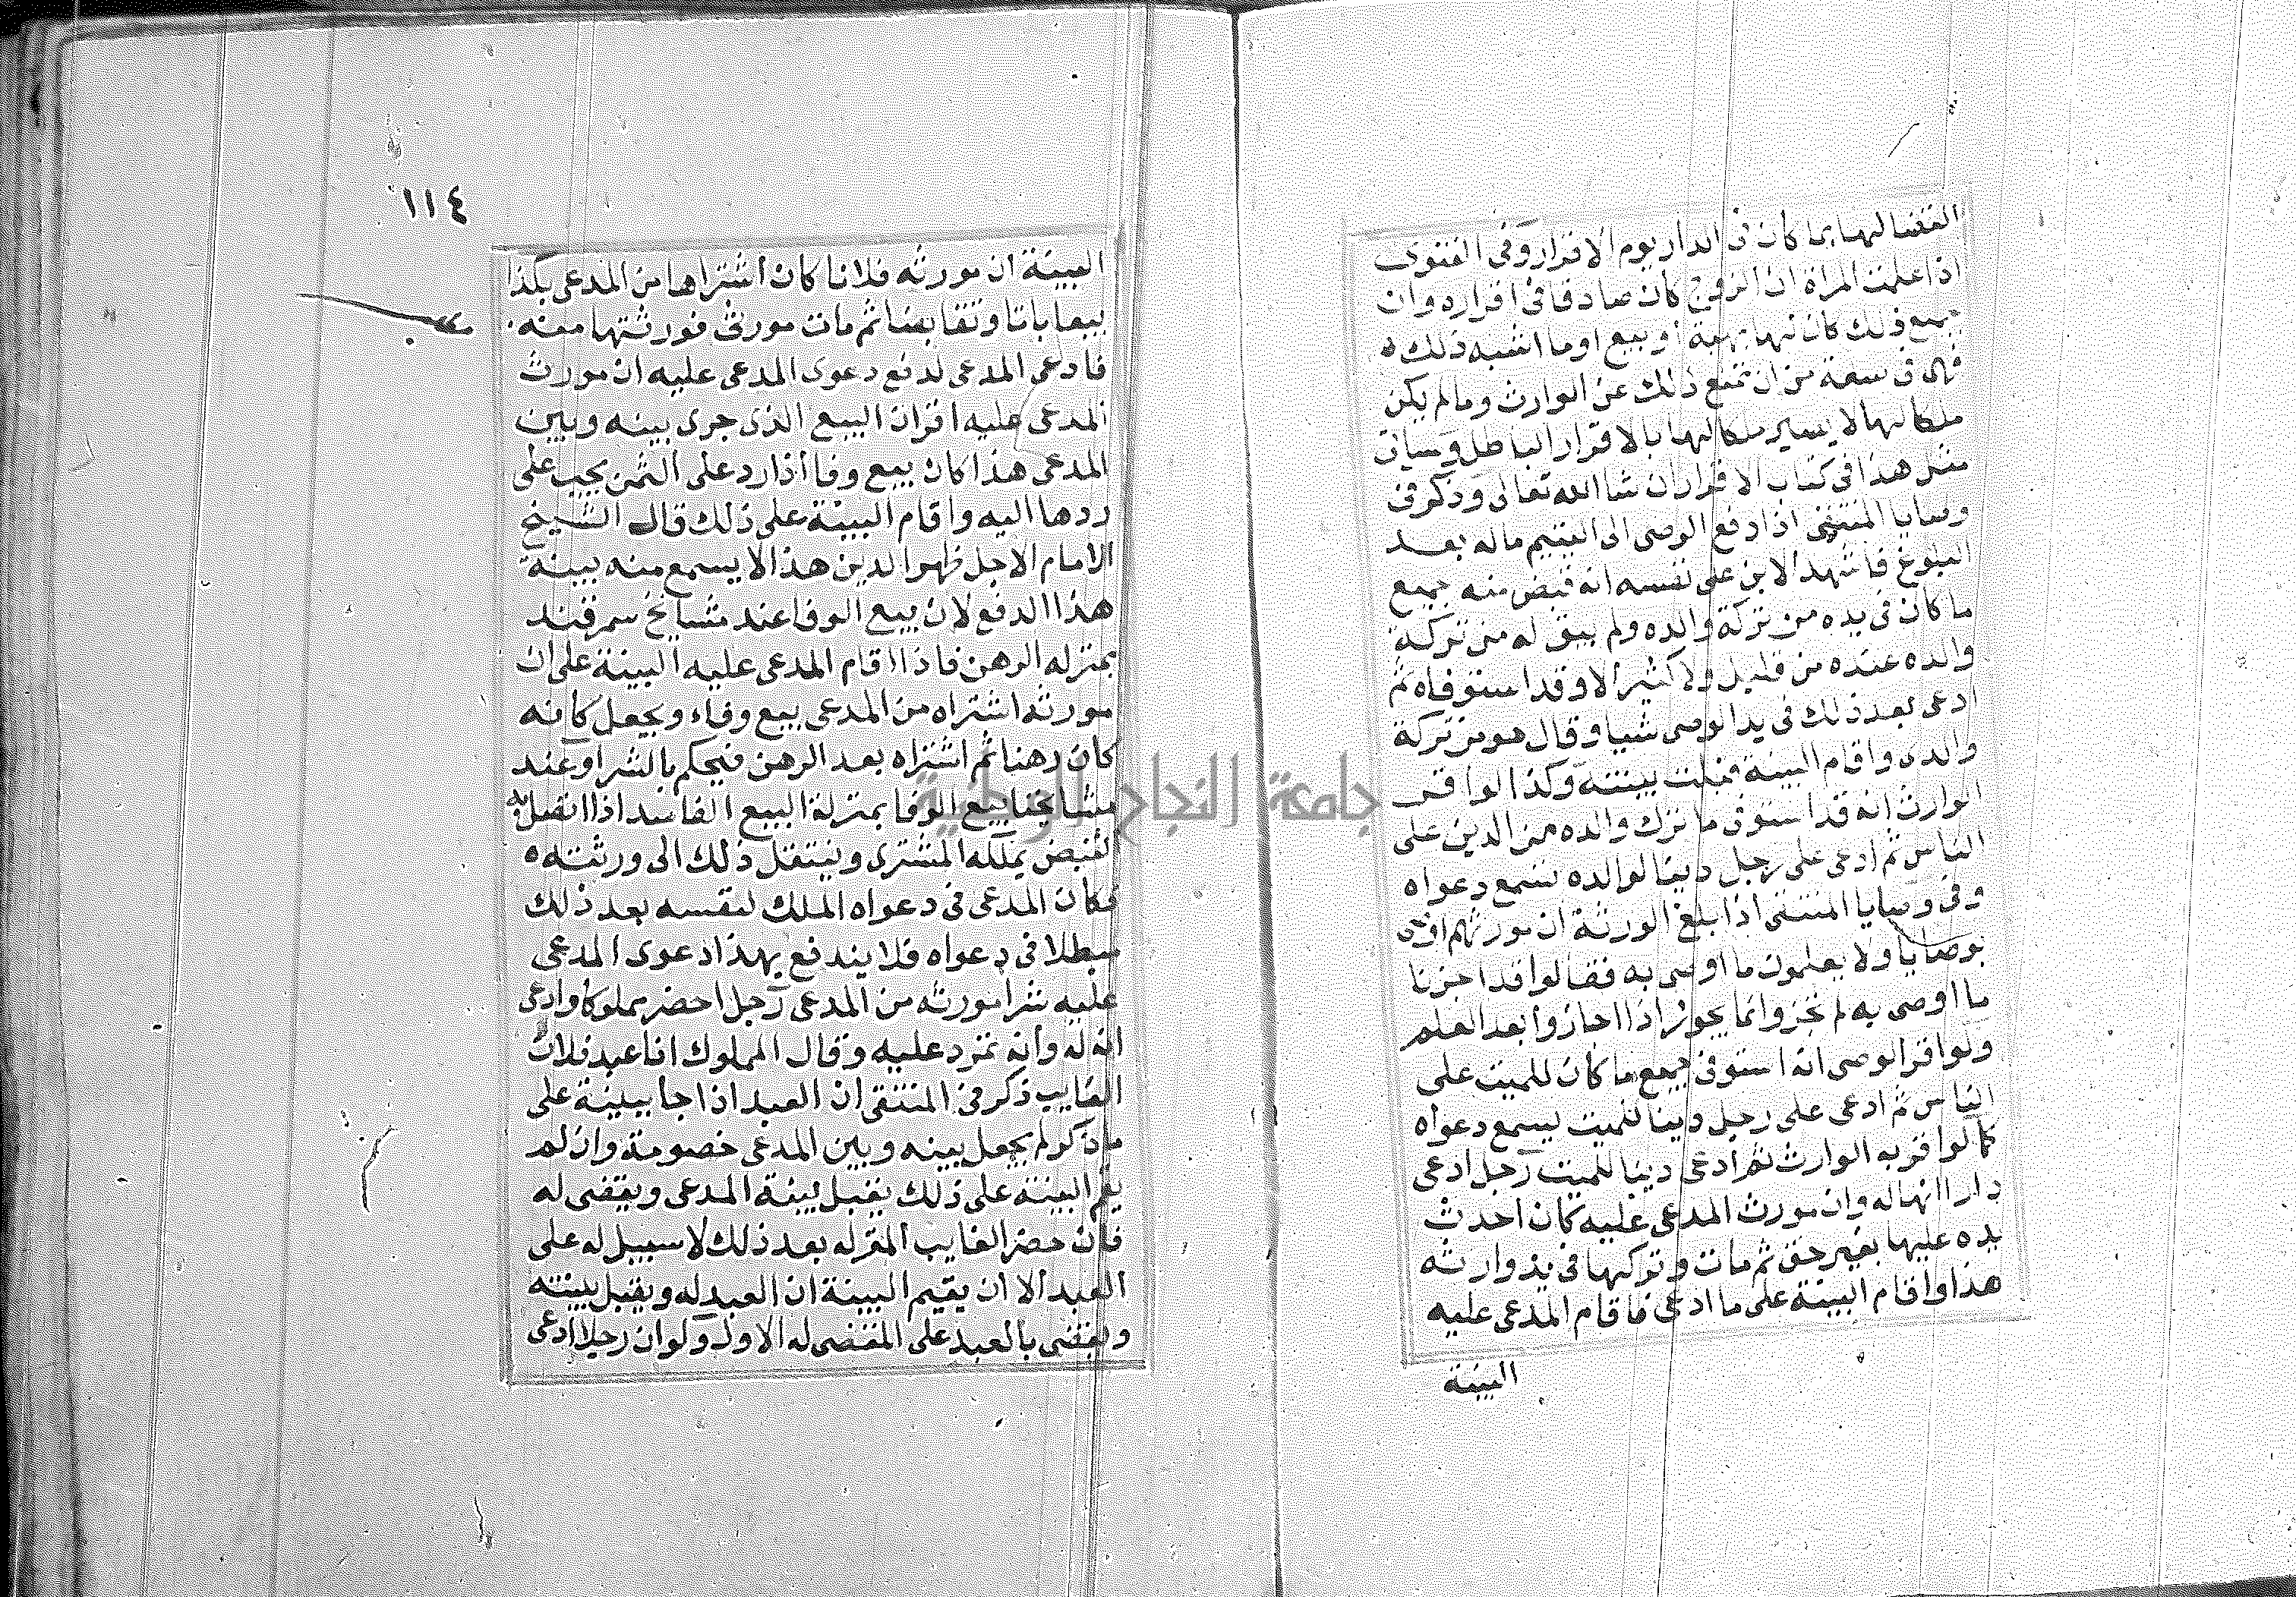 القضا لها بما كان في الدار يوم الاقرار وفي الفتوى
اذا علمت المراة ان الزوج كان صادقا في اقراره وان
جميع ذلك كان لها بهبة او بيع اوما اشبه ذلك
فهي في سعة من ان تمنع ذلك عن الوارث وما لم يكن
ملكا لها لا يصير ملكا لها بالاقرار الباطل وسياتي
مثل هذا في كتاب الاقرار ان شا الله تعالى وذكر في
وصايا المنتقى اذا دفع الوصى الى اليتيم ماله بعد
البلوغ فاشهد الابن على نفسه انه قبض منه جميع
ما كان في يده من تركة والده ولم يبق له من تركة
والده عنده من قليل ولا كثير الا وقد استوفاه ثم
ادعى بعد ذلك في يد الوصى شيا وقال هو من تركة
والدى واقام البينة قبلت بينته وكذا لو اقر
الوارث انه قد استوفى ما ترك والده من الدين على
الناس ثم ادعى على رجل دينا لوالده تسمع دعواه
وفي وصايا المنتقى اذا بلغ الورثة ان مورثهم اوصى
بوصايا ولا يعلمون ما اوصى به فقالوا قد اجزنا
ما اوصى به لم تجز وانما يجوز اذا اجازوا بعد العلم
ولو اقر الوصى انه استوفى جميع ما كان للميت على
الناس ثم ادعى على رجل دينا للميت يسمع دعواه
كما لو اقر به الوارث ثم ادعى دينا للميت رجل ادعى
دارا انها له وان مورث المدعى عليه كان احدث
يده عليها بغير حق ثم مات وتركها في يد وارثه
هذا واقام البينة على ما ادعى فاقام المدعى عليه
البينة
١١٤
البينة ان مورثه فلانا كان اشتراها من المدعى بكذا
بيعا باتا وتقابضا ثم مات مورثي فورثتها منه
فادعى المدعى لدفع دعوى المدعى عليه ان مورث
المدعى عليه اقر ان البيع الذى جرى بينه وبين
المدعى هذا كان بيع وفا اذا رد على الثمن يجب على
ردها اليه واقام البينة على ذلك قال الشيخ
الامام الاجل ظهير الدين هذا لا يسمع منه بينة
هذا الدفع لان بيع الوفا عند مشايخ سمرقند
بمنزله الرهن فاذا اقام المدعى عليه البينة على ان
مورثه اشتراه من المدعى بيع وفاء ويجعل كانه
كان رهنا ثم اشتراه بعد الرهن فيحكم بالشرا وعند
مشايخنا بيع الوفا بمنزلة البيع الفاسد اذا اتصل به
القبض يملكه المشترى وينتقل ذلك الى ورثته
فكان المدعى في دعواه الملك لنفسه بعد ذلك
مبطلا في دعواه فلا يندفع بهذا دعوى المدعى
عليه شرا مورثه من المدعى رجل احضر مملوكا وادعى
انه له وانه تمرد عليه وقال المملوك انا عبد فلان
الغايب ذكر في المنتقى ان العبد اذا جا ببينة على
ما ذكر لم يجعل بينه وبين المدعى خصومة وان لم
يقم البينة على ذلك يقبل بينة المدعى ويقضى له
فان حضر الغايب المقر له بعد ذلك لا سبيل له على
العبد الا ان يقيم البينة ان العبد له ويقبل بينته
ويقضى بالعبد على المقضى له الاول ولو ان رجلا ادعى
جامعة النجاح الوطنية